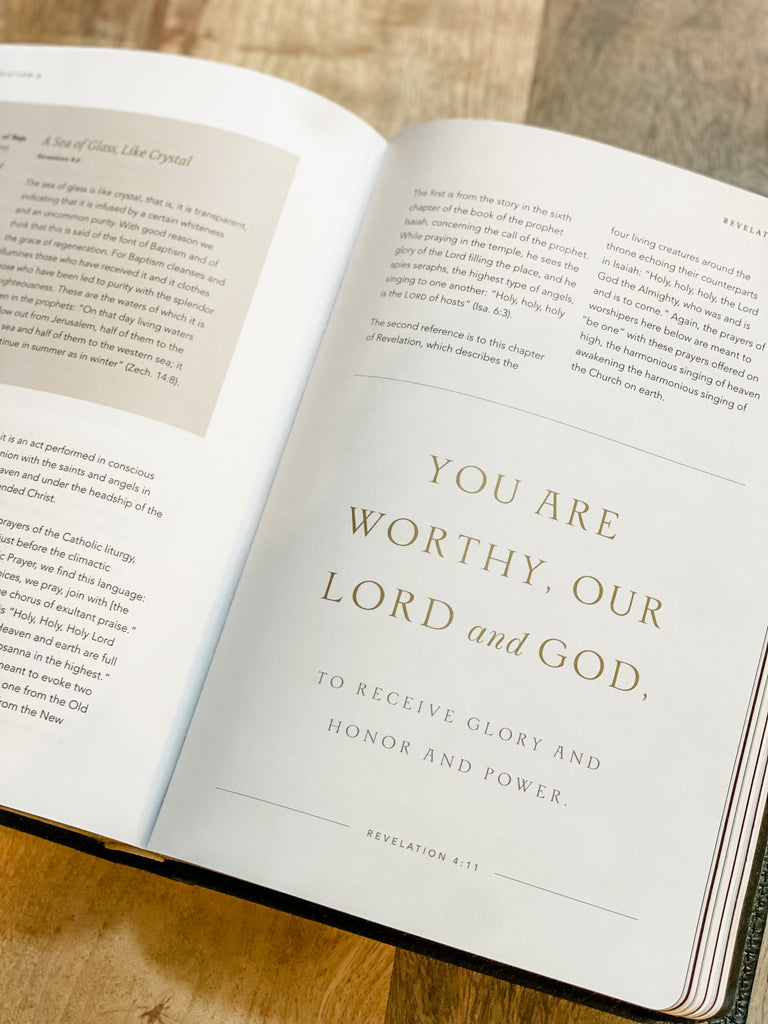 A Sea of Glass, Like Crystal
Revelation 4:6
The sea of glass is like crystal, that is, it is transparent,
indicating that it is infused by a certain whiteness
and an uncommon purity. With good reason we
think that this is said of the font of Baptism and of
the grace of regeneration. For Baptism cleanses and
illumines those who have received it and it clothes
those who have been led to purity with the splendor
righteousness. These are the waters of which it is
in the prophets: "On that day living waters
flow out from Jerusalem, half of them to the
sea and half of them to the western sea; it
continue in summer as in winter" (Zech. 14:8).
it is an act performed in conscious
union with the saints and angels in
heaven and under the headship of the
Christ.
prayers of the Catholic liturgy,
just before the climactic
Prayer, we find this language:
voices, we pray, join with [the
chorus of exultant praise."
"Holy, Holy, Holy Lord
Heaven and earth are full
Hosanna in the highest."
meant to evoke two
one from the Old
from the New
REVELAT
The first is from the story in the sixth
chapter of the book of the prophet
Isaiah, concerning the call of the prophet.
While praying in the temple, he sees the
glory of the Lord filling the place, and he
spies seraphs, the highest type of angels,
singing to one another: "Holy, holy, holy
is the LORD of hosts" (Isa. 6:3).
The second reference is to this chapter
of Revelation, which describes the
four living creatures around the
throne echoing their counterparts
in Isaiah: "Holy, holy, holy, the Lord
God the Almighty, who was and is
and is to come." Again, the prayers of
worshipers here below are meant to
"be one" with these prayers offered on
high, the harmonious singing of heaven
awakening the harmonious singing of
the Church on earth.
YOU ARE
WORTHY, OUR
LORD and GOD,
TO RECEIVE GLORY AND
HONOR AND POWER.
REVELATION 4:11